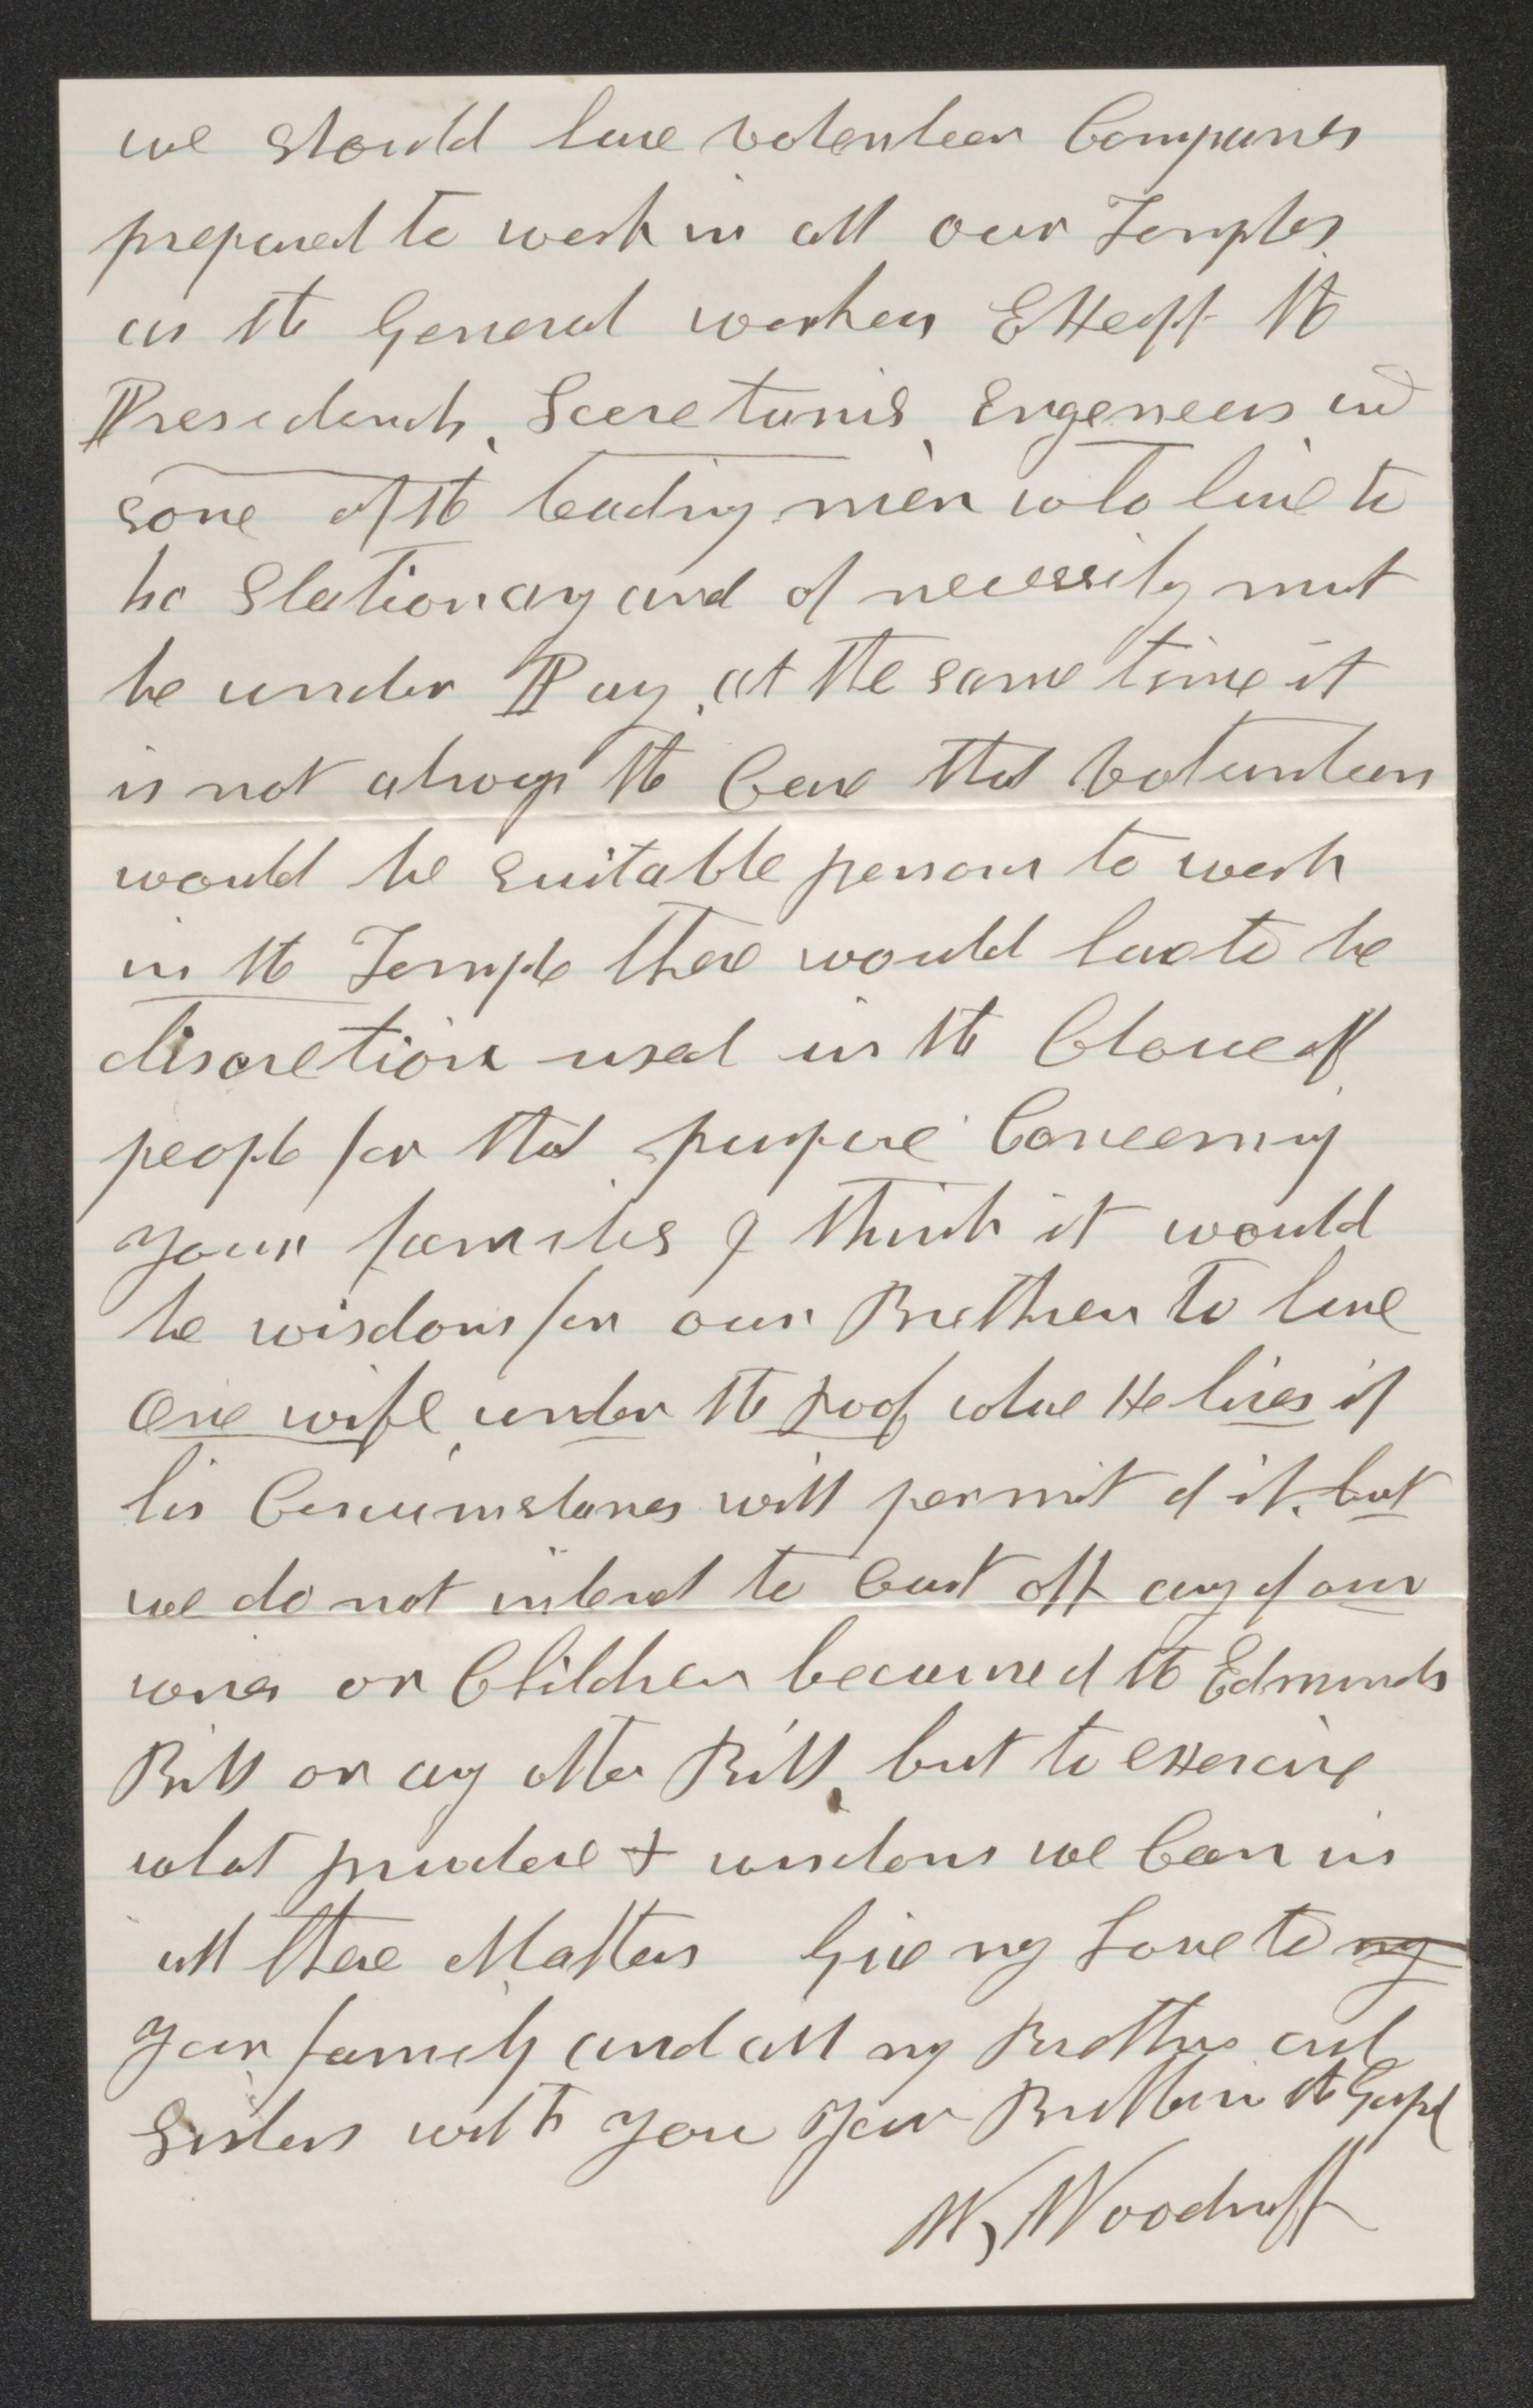 we should have volenteer Companies
prepared to work in all our Temples
as the General workers Except the
Presidents, Secretaries, Engeneers and
some of the leading men who have to
be Stationary and of necessity must
be under Pay, at the same time it
is not always the Case that Volunteers
would be suitable persons to work
in the Temple there would have to be
discretion used in the Choice of
people for that purpose Concerning
your families I think it would
be wisdom for our Brethren to have
one wife under the roof whare He lives if
his Circumstances will permit of it. but
we do not intend to Cast off any of our
wives or Children because of the Edmunds
Bill or any other Bill, but to exercise
what prudence & wisdom we Can in
all these Matters Give my Love to my
your family and all my Brothers and
Sisters with you Your Brother in the Gospel
W, Woodruff